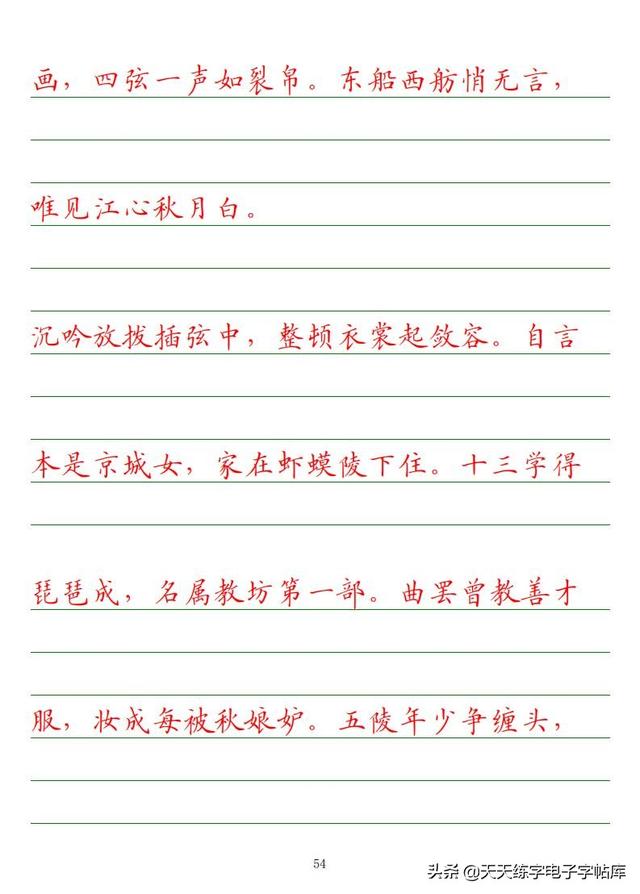 画，四弦一声如裂帛。东船西舫悄无言，
唯见江心秋月白。
沉吟放拨插弦中，整顿衣裳起敛容。自言
本是京城女，家在虾蟆陵下住。十三学得
琵琶成，名属教坊第一部。曲罢曾教善才
服，妆成每被秋娘妒。五陵年少争缠头，
54
头条 @天天练字电子字帖库